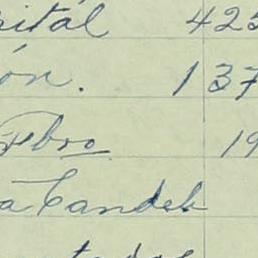 pital 425
ón. 137
Febro 19
a Candela